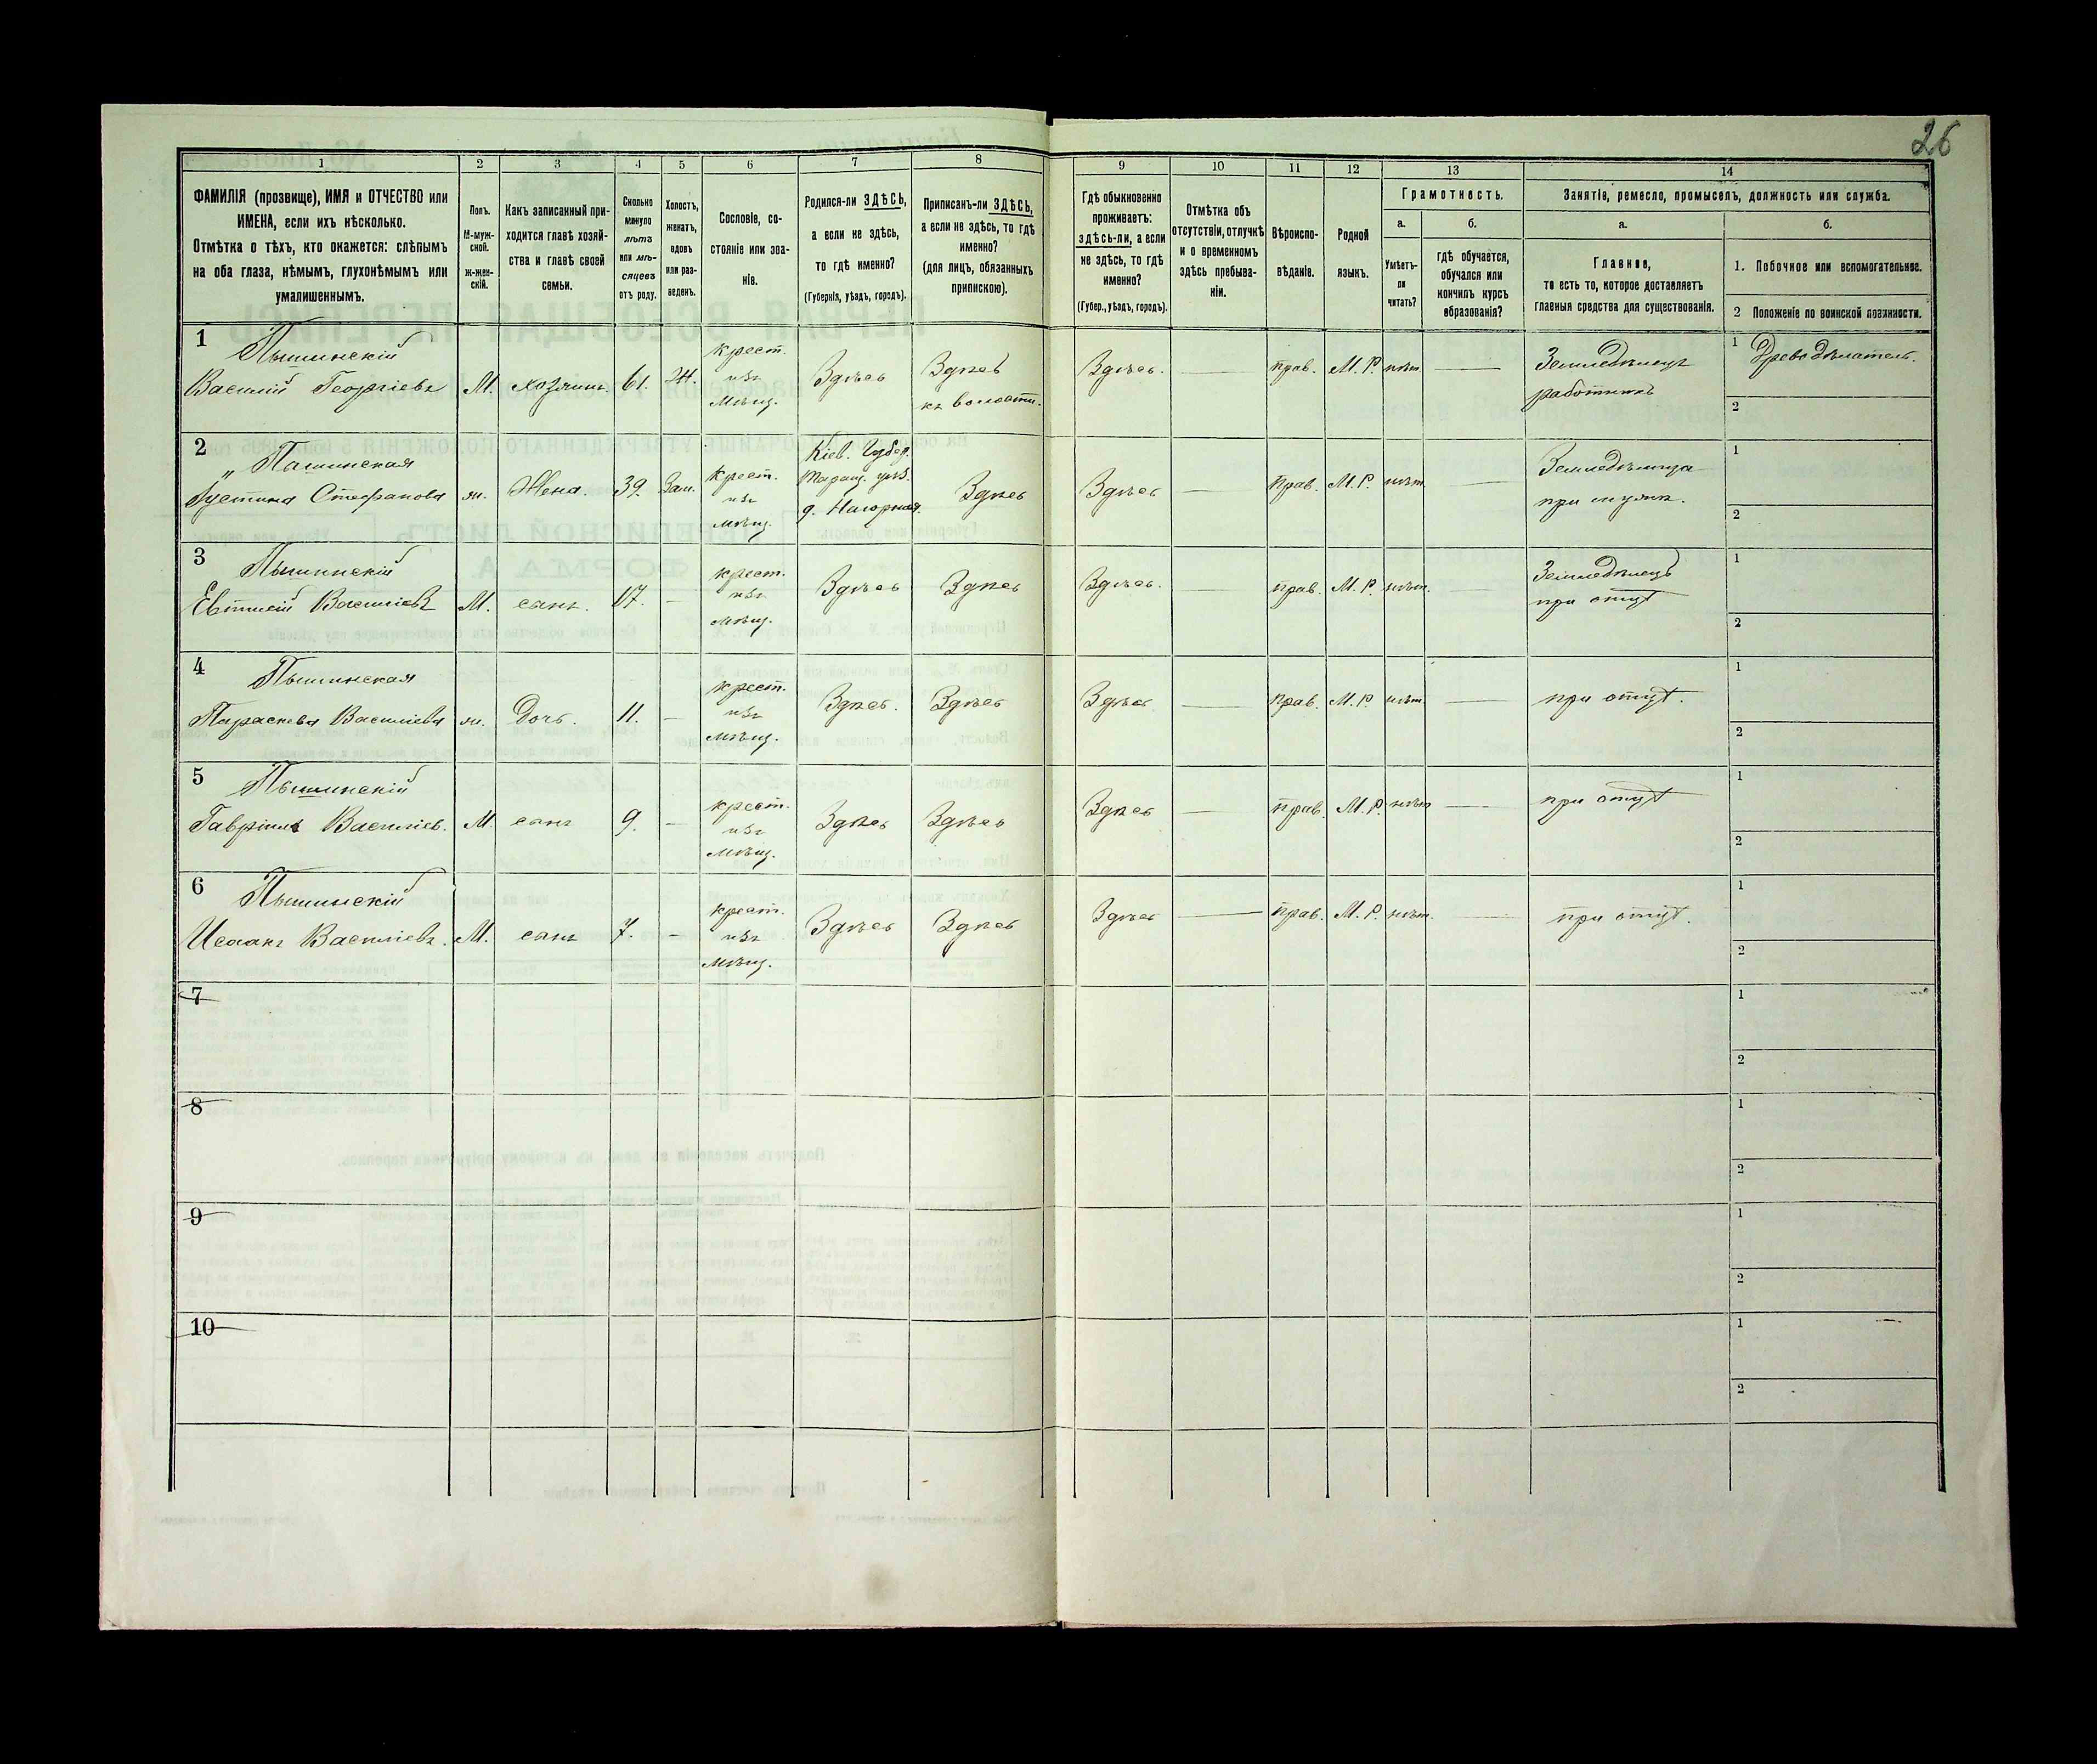 26
1 2 3 4 5 6 7 8 9 10 11 12 13 14
ФАМИЛІЯ (прозвище), ИМЯ и ОТЧЕСТВО или ИМЕНА, если ихъ нѣсколько.
Отмѣтка о тѣхъ, кто окажется: слѣпымъ на оба глаза, нѣмымъ, глухонѣмымъ или умалишеннымъ.
Полъ. М-мужской. Ж-женскій.
Какъ записанный приходится главѣ хозяйства и главѣ своей семьи.
Сколько минуло лѣтъ или мѣсяцевъ отъ роду.
Холостъ, женатъ, вдовъ или разведенъ.
Сословіе, состояніе или званіе.
Родился-ли ЗДѢСЬ, а если не здѣсь, то гдѣ именно?
(Губернія, уѣздъ, городъ).
Приписанъ-ли ЗДѢСЬ, а если не здѣсь, то гдѣ именно?
(для лицъ, обязанныхъ припискою).
Гдѣ обыкновенно проживаетъ: здѣсь-ли, а если не здѣсь, то гдѣ именно?
(Губер., уѣздъ, городъ).
Отмѣтка объ отсутствіи, отлучкѣ и о временномъ здѣсь пребываніи.
Вѣроисповѣданіе.
Родной языкъ.
Грамотность.
а. б.
Умѣетъ-ли читать?
гдѣ обучается, обучался или кончилъ курсъ образованія?
Занятія, ремесло, промыселъ, должность или служба.
а. б.
Главное,
то есть то, которое доставляетъ главныя средства для существованія.
1. Побочное или вспомогательное.
2 Положеніе по воинской повинности.
1 Пышинскій
Василій Георгіевъ М. хозяинъ 61. Ж. крест. изъ мѣщ. Здѣсь Здѣсь къ волости. Здѣсь. — прав. М. Р. нѣт. — Земледѣлецъ работникъ 1 Древодѣлатель. 2
2 „ Пашинская
Іустина Стефанова ж. Жена. 39. Зам. крест. изъ мѣщ. Кіев. Губер. Таращ. уѣз. д. Нагорная. Здѣсь Здѣсь — прав. М. Р. нѣт. — Земледѣлица при мужѣ. 1 2
3 Пышинскій
Евтихій Василіевъ М. сынъ. 17. — крест. изъ мѣщ. Здѣсь Здѣсь Здѣсь. — прав. М. Р. нѣт. — Земледѣлецъ при отцѣ 1 2
4 Пышинская
Параскева Василіева ж. Дочь. 11. — крест. изъ мѣщ. Здѣсь. Здѣсь Здѣсь — прав. М. Р. нѣт. — при отцѣ. 1 2
5 Пышинскій
Гавріилъ Василіев. М. сынъ 9. — крест. изъ мѣщ. Здѣсь Здѣсь Здѣсь — прав. М. Р. нѣт — при отцѣ 1 2
6 Пышинскій
Исаакъ Василіевъ. М. сынъ 7. — крест. изъ мѣщ. Здѣсь Здѣсь Здѣсь — прав. М. Р. нѣт. — при отцѣ. 1 2
7 1 2
8 1 2
9 1 2
10 1 2